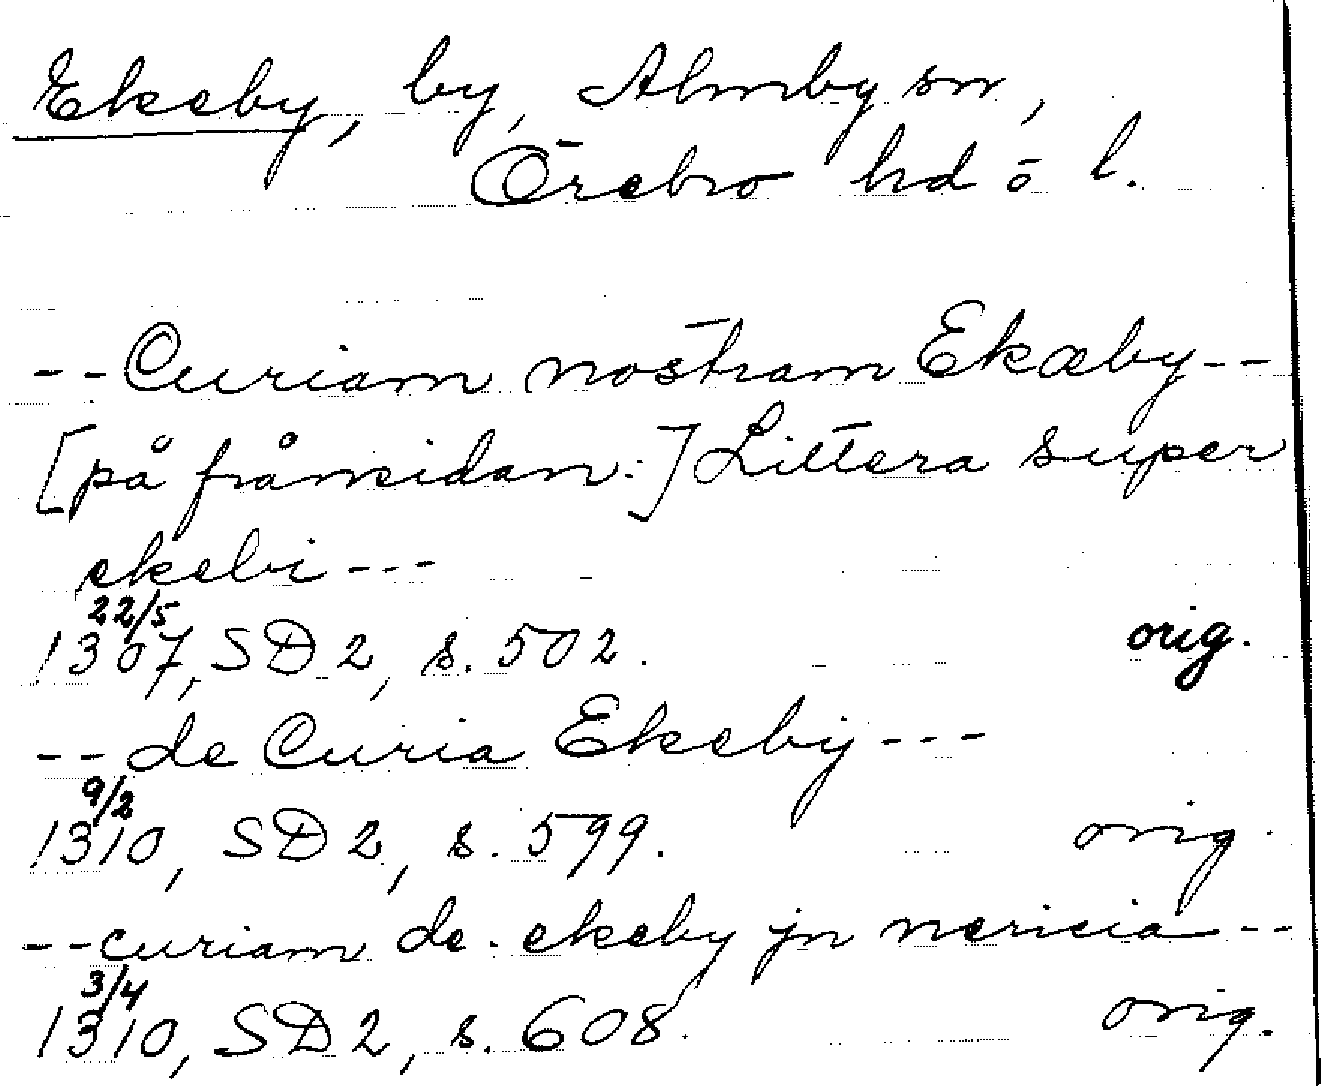 Ekeby, by, Almby sn,
Örebro hd o l.
-- Curiam nostram Ekæby --
[på frånsidan:] Littera super
ekebi ---
22/5
1307, SD 2, s. 502. orig.
-- de Curia Ekeby ---
9/2
1310, SD 2, s. 599. orig.
-- curiam de ekeby jn nericia --
3/4
1310, SD 2, s. 608. orig.